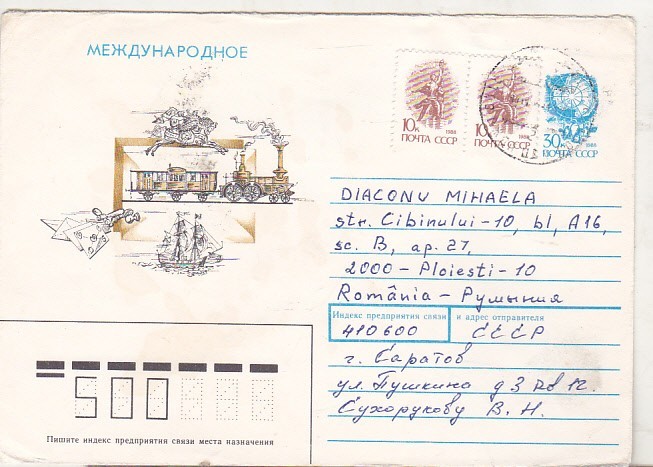 МЕЖДУНАРОДНОЕ
10к ПОЧТА СССР 1988
10к ПОЧТА СССР 1988
30к ПОЧТА СССР 1988
DIACONU MIHAELA
str. Cibinului-10, bl, A16,
sc. B, ap. 27,
2000 - Ploiesti-10
România - Румыния
Индекс предприятия связи и адрес отправителя
410600 СССР
г. Саратов
ул. Пушкина д 3 кв 12.
Сухорукову В. Н.
500
Пишите индекс предприятия связи места назначения